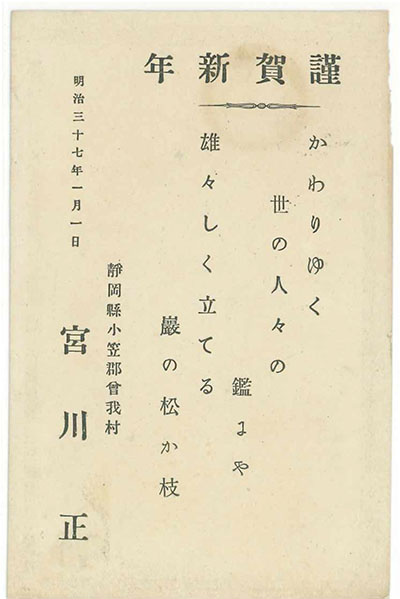 謹賀新年
かわりゆく
世の人々の
鑑まや
雄々しく立てる
巖の松か枝
明治三十七年一月一日
靜岡縣小笠郡曾我村
宮川正